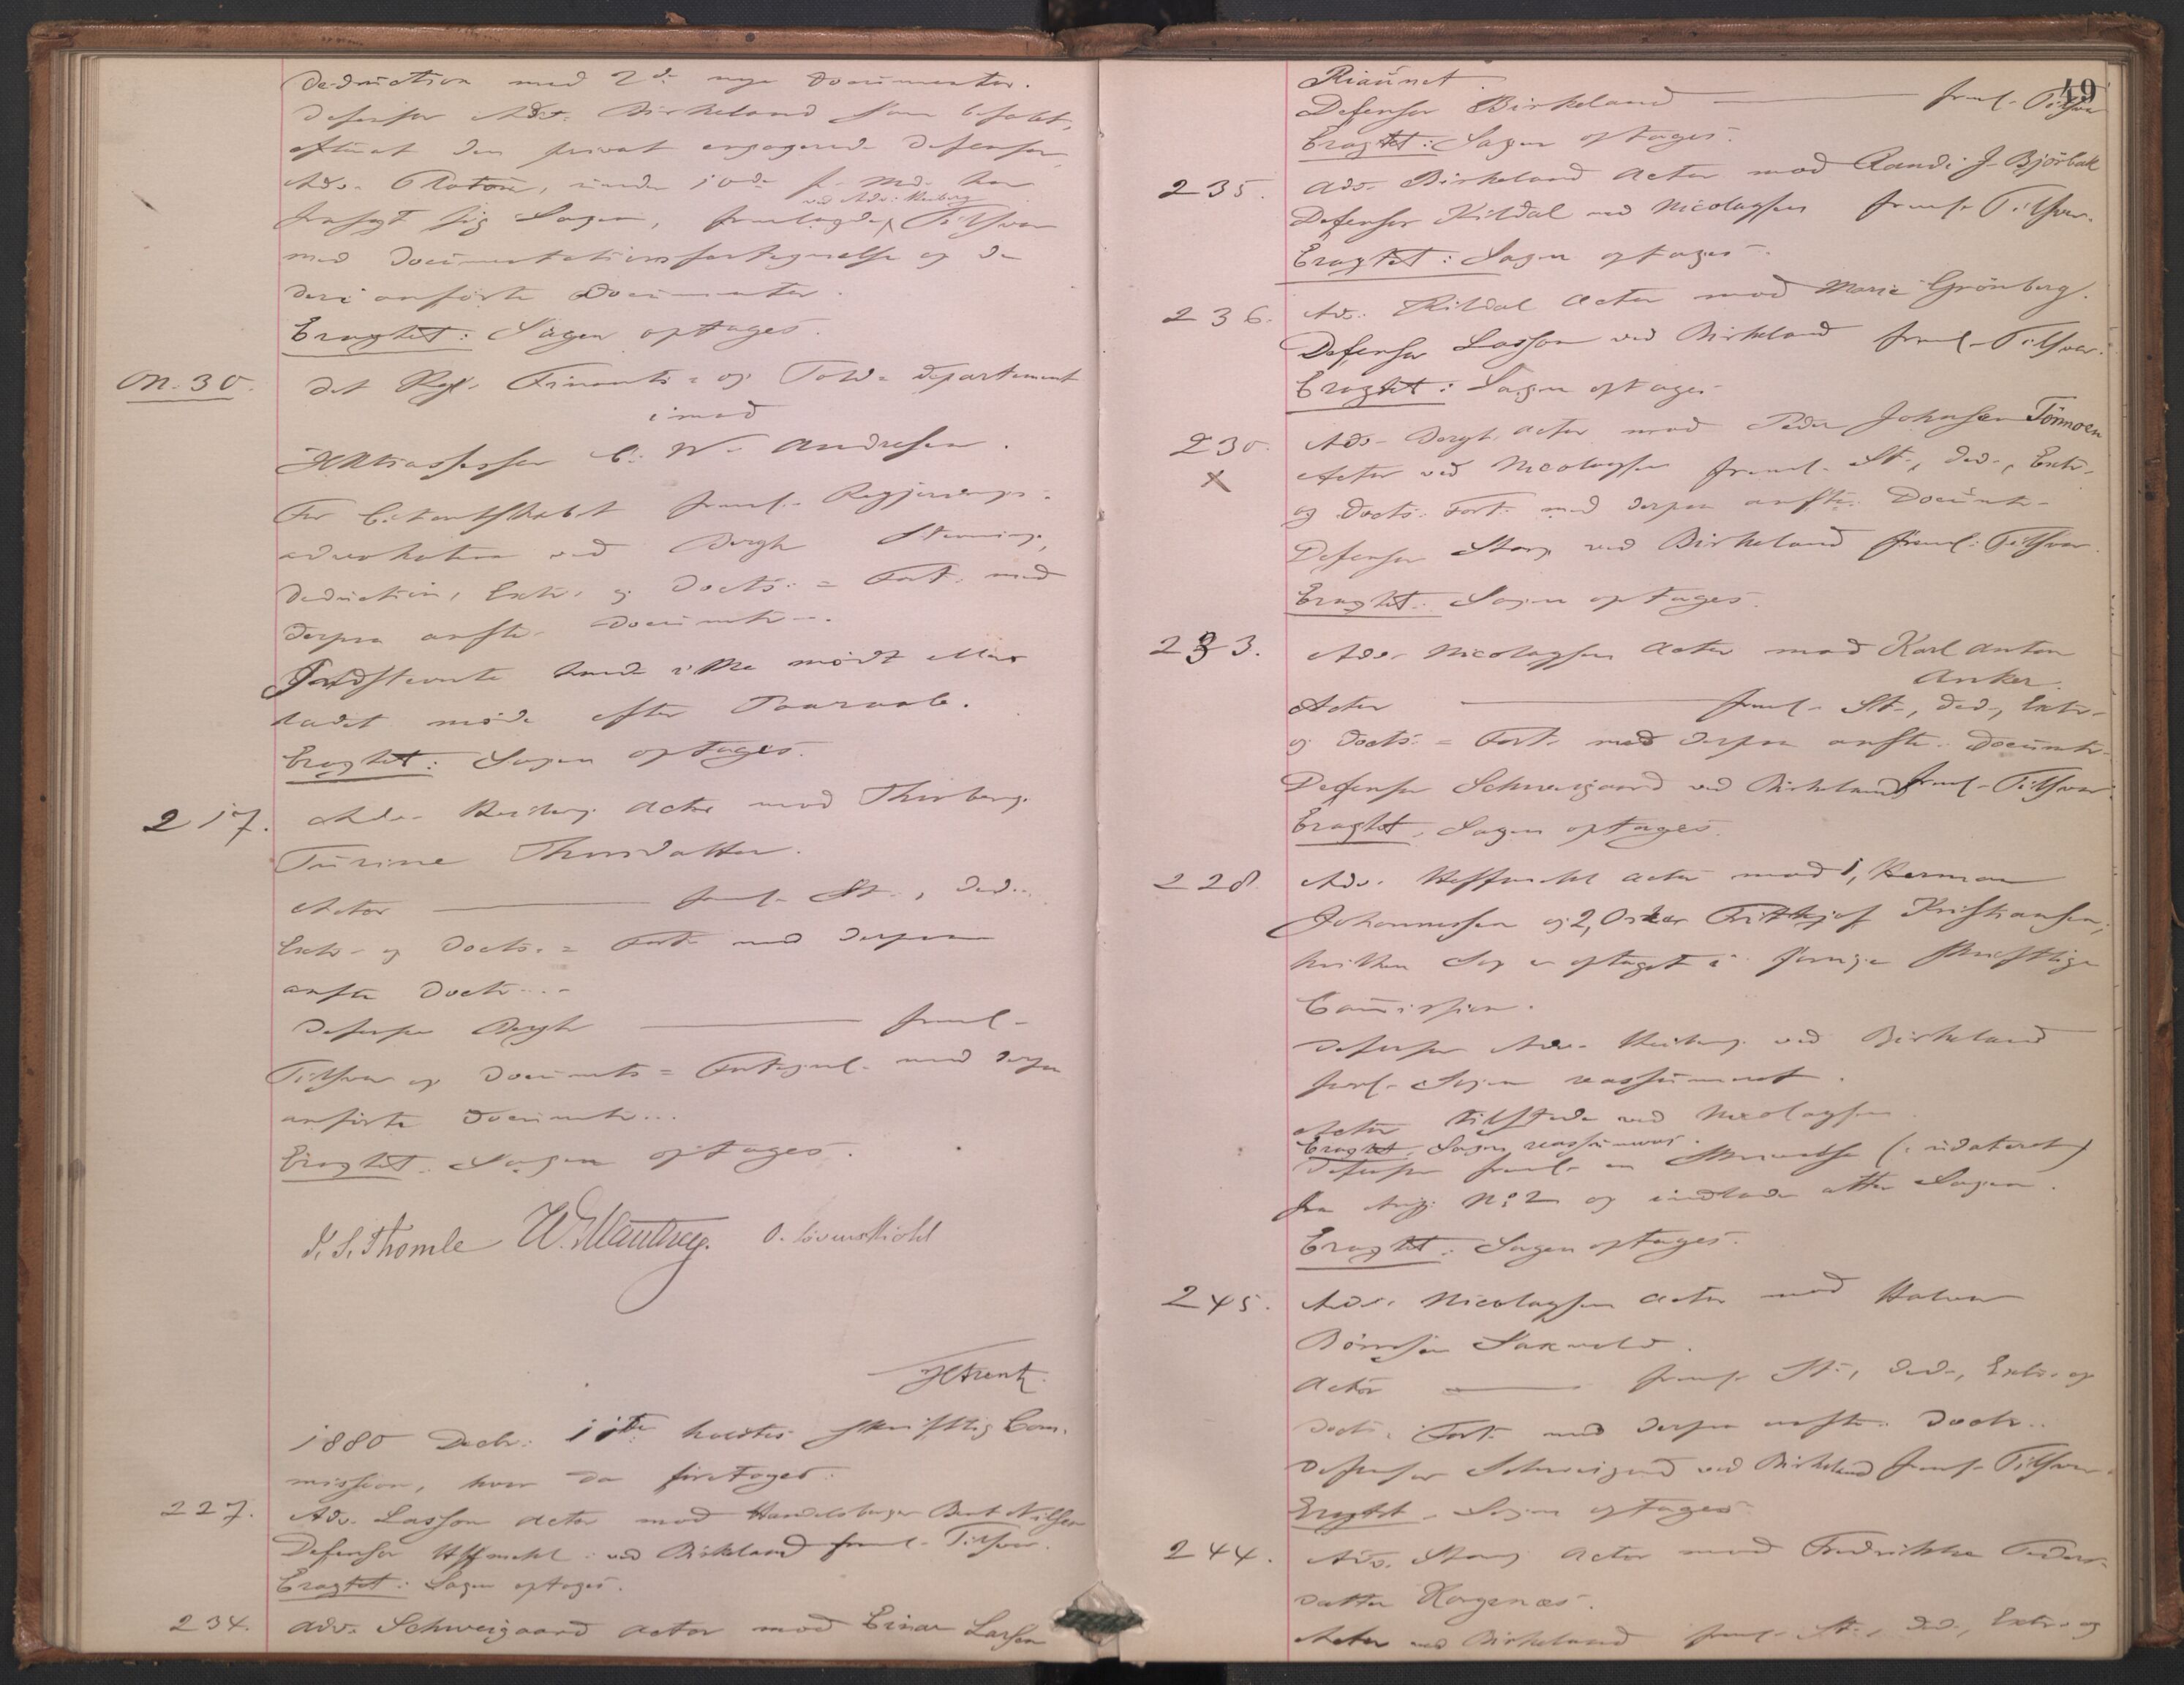 Deduction med 2de nye Documenter.
Defensor Adv. Birkeland som befalet,
efterat den privat engagerede Defensor,
Adv. under 10de f. Md. har
ved Adv: Heiberg
frasagt sig Sagen, fremlagde Tilsvar
med Documentationsfortegnelse og de
deri anførte Documenter.
Eragtet: Sagen optages.
On. 30. Det Kgl. Finants- og Told-Departement
imod
C. W. Andresen.
For Citantskabet freml. Regjerings-
advokaten ved Bergh Stevning,
Deduction, Extr. og Docts. = Fort. med
derpaa anfte. Documenter.
Indstevnte havde ikke mødt eller
ladet møde efter Paaraab.
Eragtet: Sagen optages.
217. Adv. Heiberg Actor mod Thorberg
Turine Thorsdatter.
Actor ——— freml. St., Ded.,
Extr. og Docts. = Fort. med derpaa
anfte Doctr.
Defensor Bergh ——— freml.
Tilsvar og Documts = Fortegnel. med derpaa
anførte Documenter...
Eragtet: Sagen optages.
J. S. Thomle O. Løvenskiold
1880 Decbr. 11te holdtes skriftlig Com-
mission, hvor da foretoges:
227. Adv. Lasson Actor mod Handelsborger Bernt Nilsen
Defensor Hffmehl. ved Birkeland freml. Tilsvar.
Eragtet: Sagen optages.
234. Adv. Schweigaard Actor mod Einar Larsen
49
Riaünet
Defensor Birkeland ——— freml. Tilsvar
Eragtet: Sagen optages.
235. Adv. Birkeland Actor mod Randi J. Bjørbak
Defensor Kildal ved Nicolaysen freml. Tilsvar.
Eragtet: Sagen optages.
236. Adv. Kildal Actor mod Marie Grönberg.
Defensor Lasson ved Birkeland freml. Tilsvar.
Eragtet: Sagen optages.
230. Adv. Bergh Actor mod Peder Johnsen Tönmoen
X Actor ved Nicolaysen freml. St., Ded., Extr.
og Docts. Fort. med derpaa anfte. Documtr.
Defensor Stang ved Birkeland freml. Tilsvar.
Eragtet: Sagen optages.
233. Adv. Nicolaysen Actor mod Karl Anton
Anker.
Actor ——— freml. St., Ded., Extr.
og Docts. = Fort. med derpaa anfte. Documtr.
Defensor Schweigaard ved Birkeland freml. Tilsvar.
Eragtet: Sagen optages.
228. Adv. Hffmehl Actor mod 1, Herman
Johannessen og 2, Oskar Frithjof Kristiansen,
hvilken Sag er optaget i forrige skriftlige
Commission.
Defensor Adv. Heiberg ved Birkeland
forl. Sagen reassumeret.
Actor tilstede ved Nicolaysen.
Eragtet: Sagen reassumeres.
Defensor freml. en Skrivelse (udateret)
fra Ang. No. 2 og indlader atter Sagen.
Eragtet: Sagen optages.
245. Adv. Nicolaysen Actor mod Halvor
Sakvold.
Actor ——— freml. St., Ded., Extr. og
Docts. Fort. med derpaa anfte. Doctr..
Defensor Schweigaard ved Birkeland freml. Tilsvar.
Eragtet: Sagen optages.
244. Adv. Stang Actor mod Fredrikke Peders-
datter Hagenæs.
Actor ved Birkeland freml. St., Ded., Extr. og